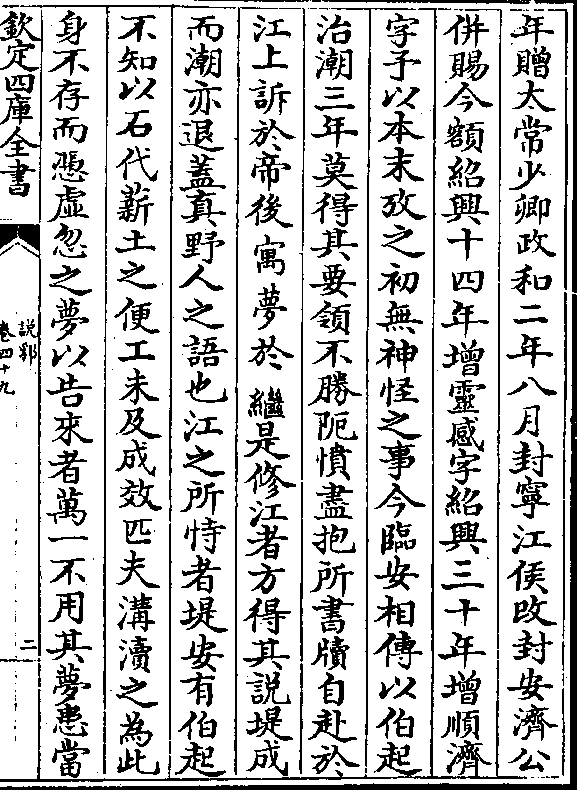 年贈太常少卿政和二年八月封寧江侯改封安濟公
併賜今額紹興十四年增靈感字紹興三十年增順濟
字予以本末攷之初無神怪之事今臨安相傳以伯起
治潮三年莫得其要領不勝阨憤盡抱所書牘自赴於
江上訴於帝後寓夢於繼是修江者方得其說堤成
而潮亦退蓋真野人之語也江之所恃者堤安有伯起
不知以石代薪土之便工未及成效匹夫溝瀆之為此
身不存而憑虛忽之夢以告來者萬一不用其夢患當
欽定四庫全書
說郛
卷四十九
二